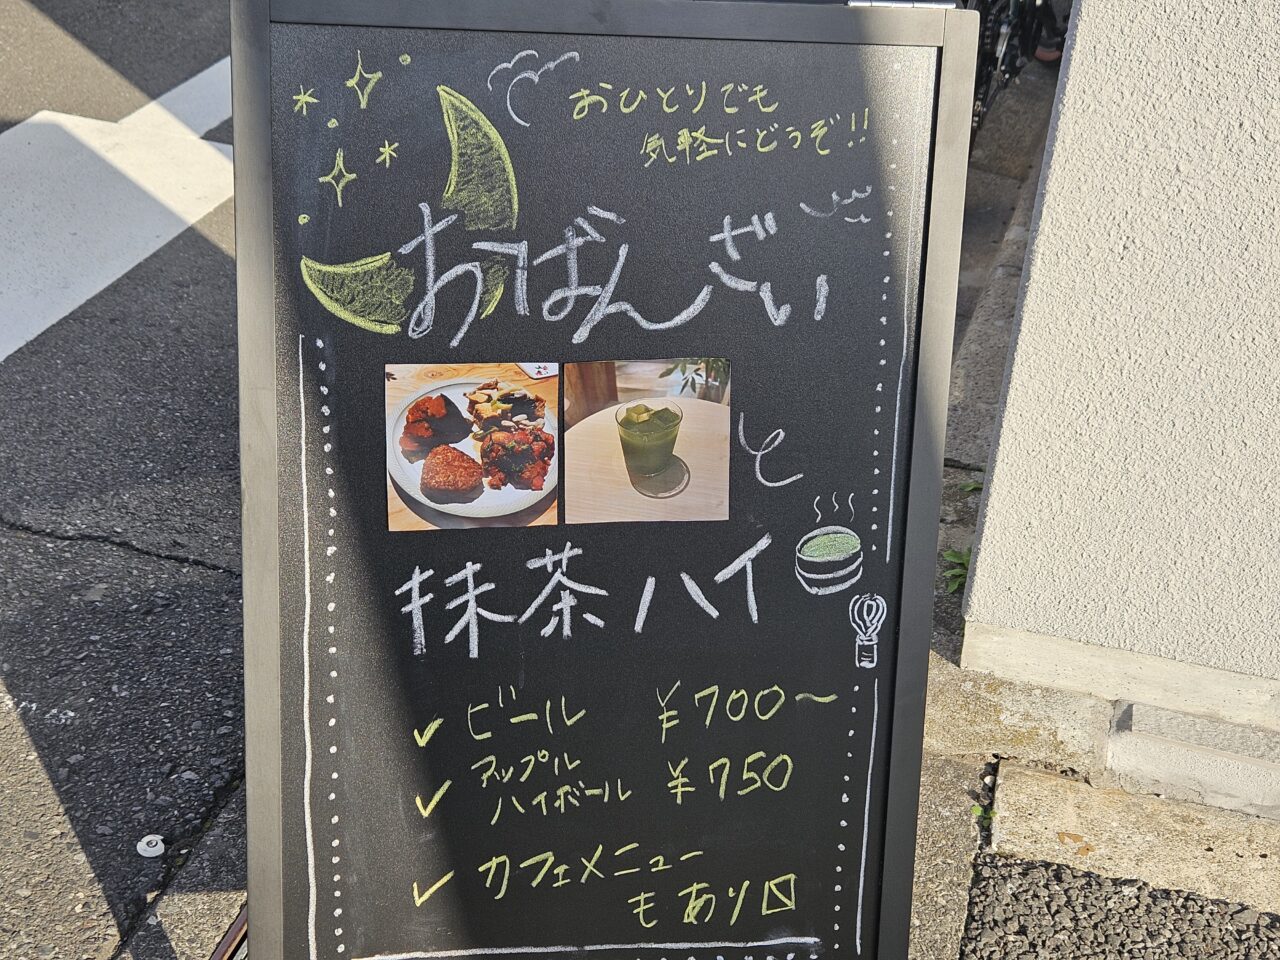 おひとりでも
気軽にどうぞ!!
おばんざい
と
抹茶ハイ
ビール ¥700〜
アップル
ハイボール ¥750
カフェメニュー
もあり〼